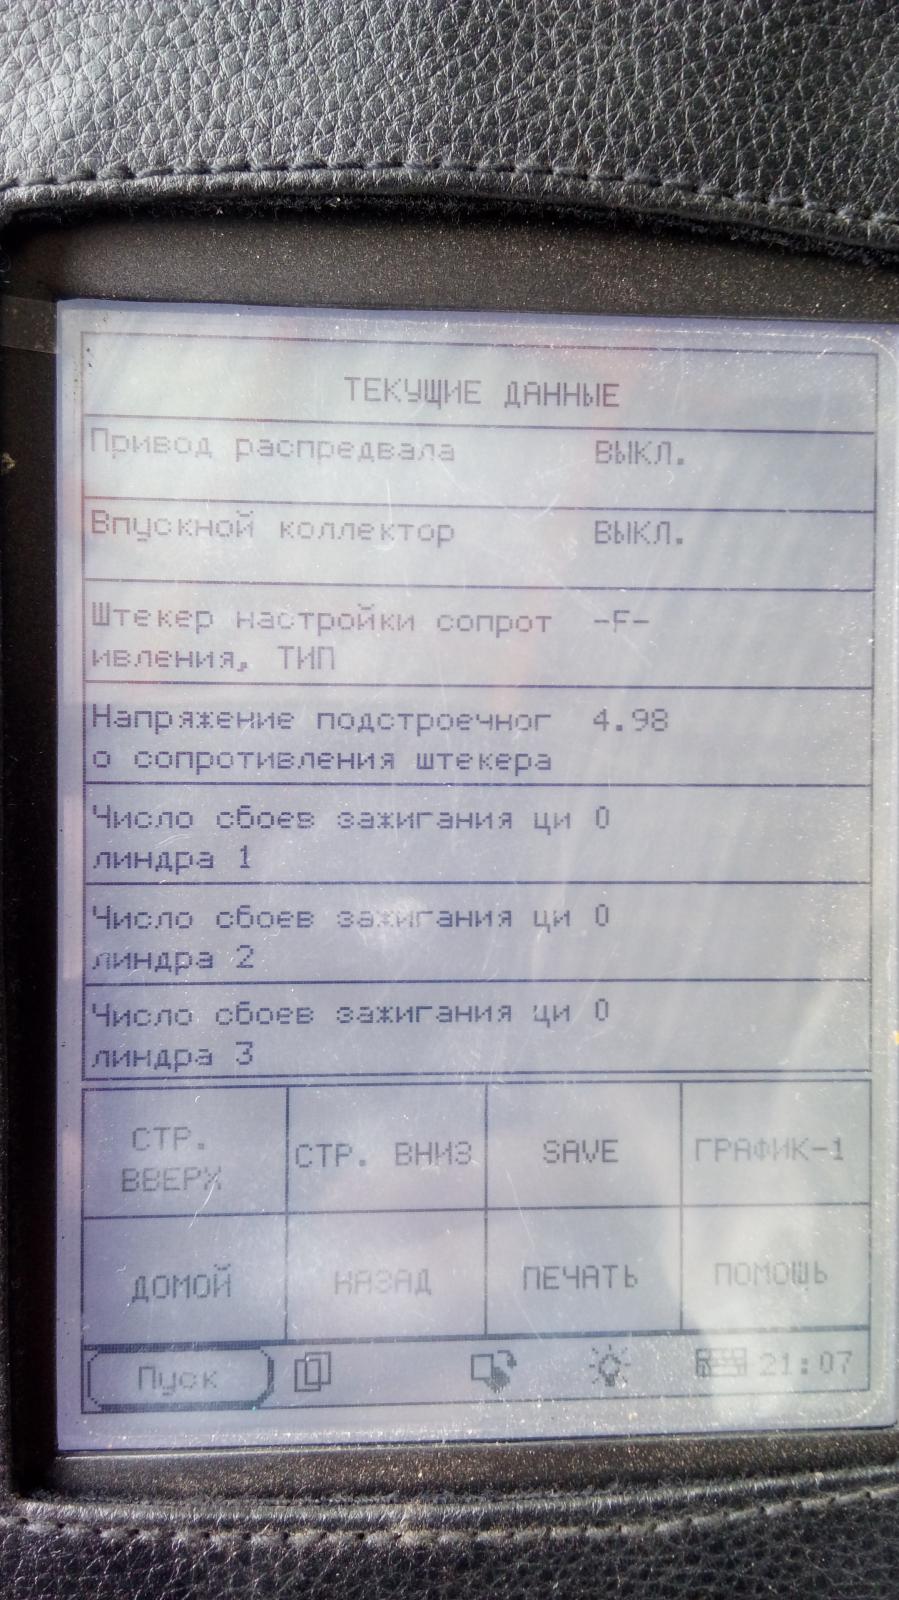 ТЕКУЩИЕ ДАННЫЕ
Привод распредвала ВЫКЛ.
Впускной коллектор ВЫКЛ.
Штекер настройки сопрот -F-
ивления, ТИП
Напряжение подстроечног 4.98
о сопротивления штекера
Число сбоев зажигания ци 0
линдра 1
Число сбоев зажигания ци 0
линдра 2
Число сбоев зажигания ци 0
линдра 3
СТР.
ВВЕРХ
СТР. ВНИЗ
SAVE
ГРАФИК-1
ДОМОЙ
НАЗАД
ПЕЧАТЬ
ПОМОЩЬ
Пуск
21:07